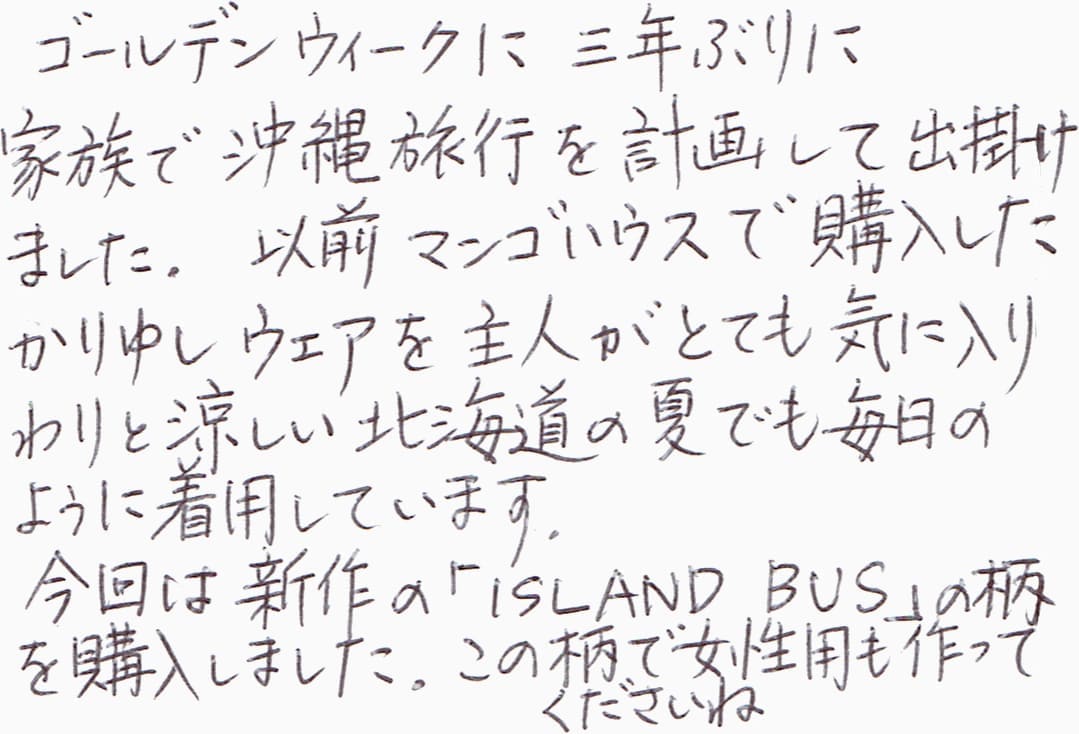 ゴールデンウィークに 三年ぶりに
家族で沖縄旅行を計画して出掛け
ました。 以前マンゴハウスで購入した
かりゆしウェアを主人がとても気に入り
わりと涼しい北海道の夏でも毎日の
ように着用しています。
今回は新作の「ISLAND BUS」の柄
を購入しました。この柄で女性用も作って
くださいね